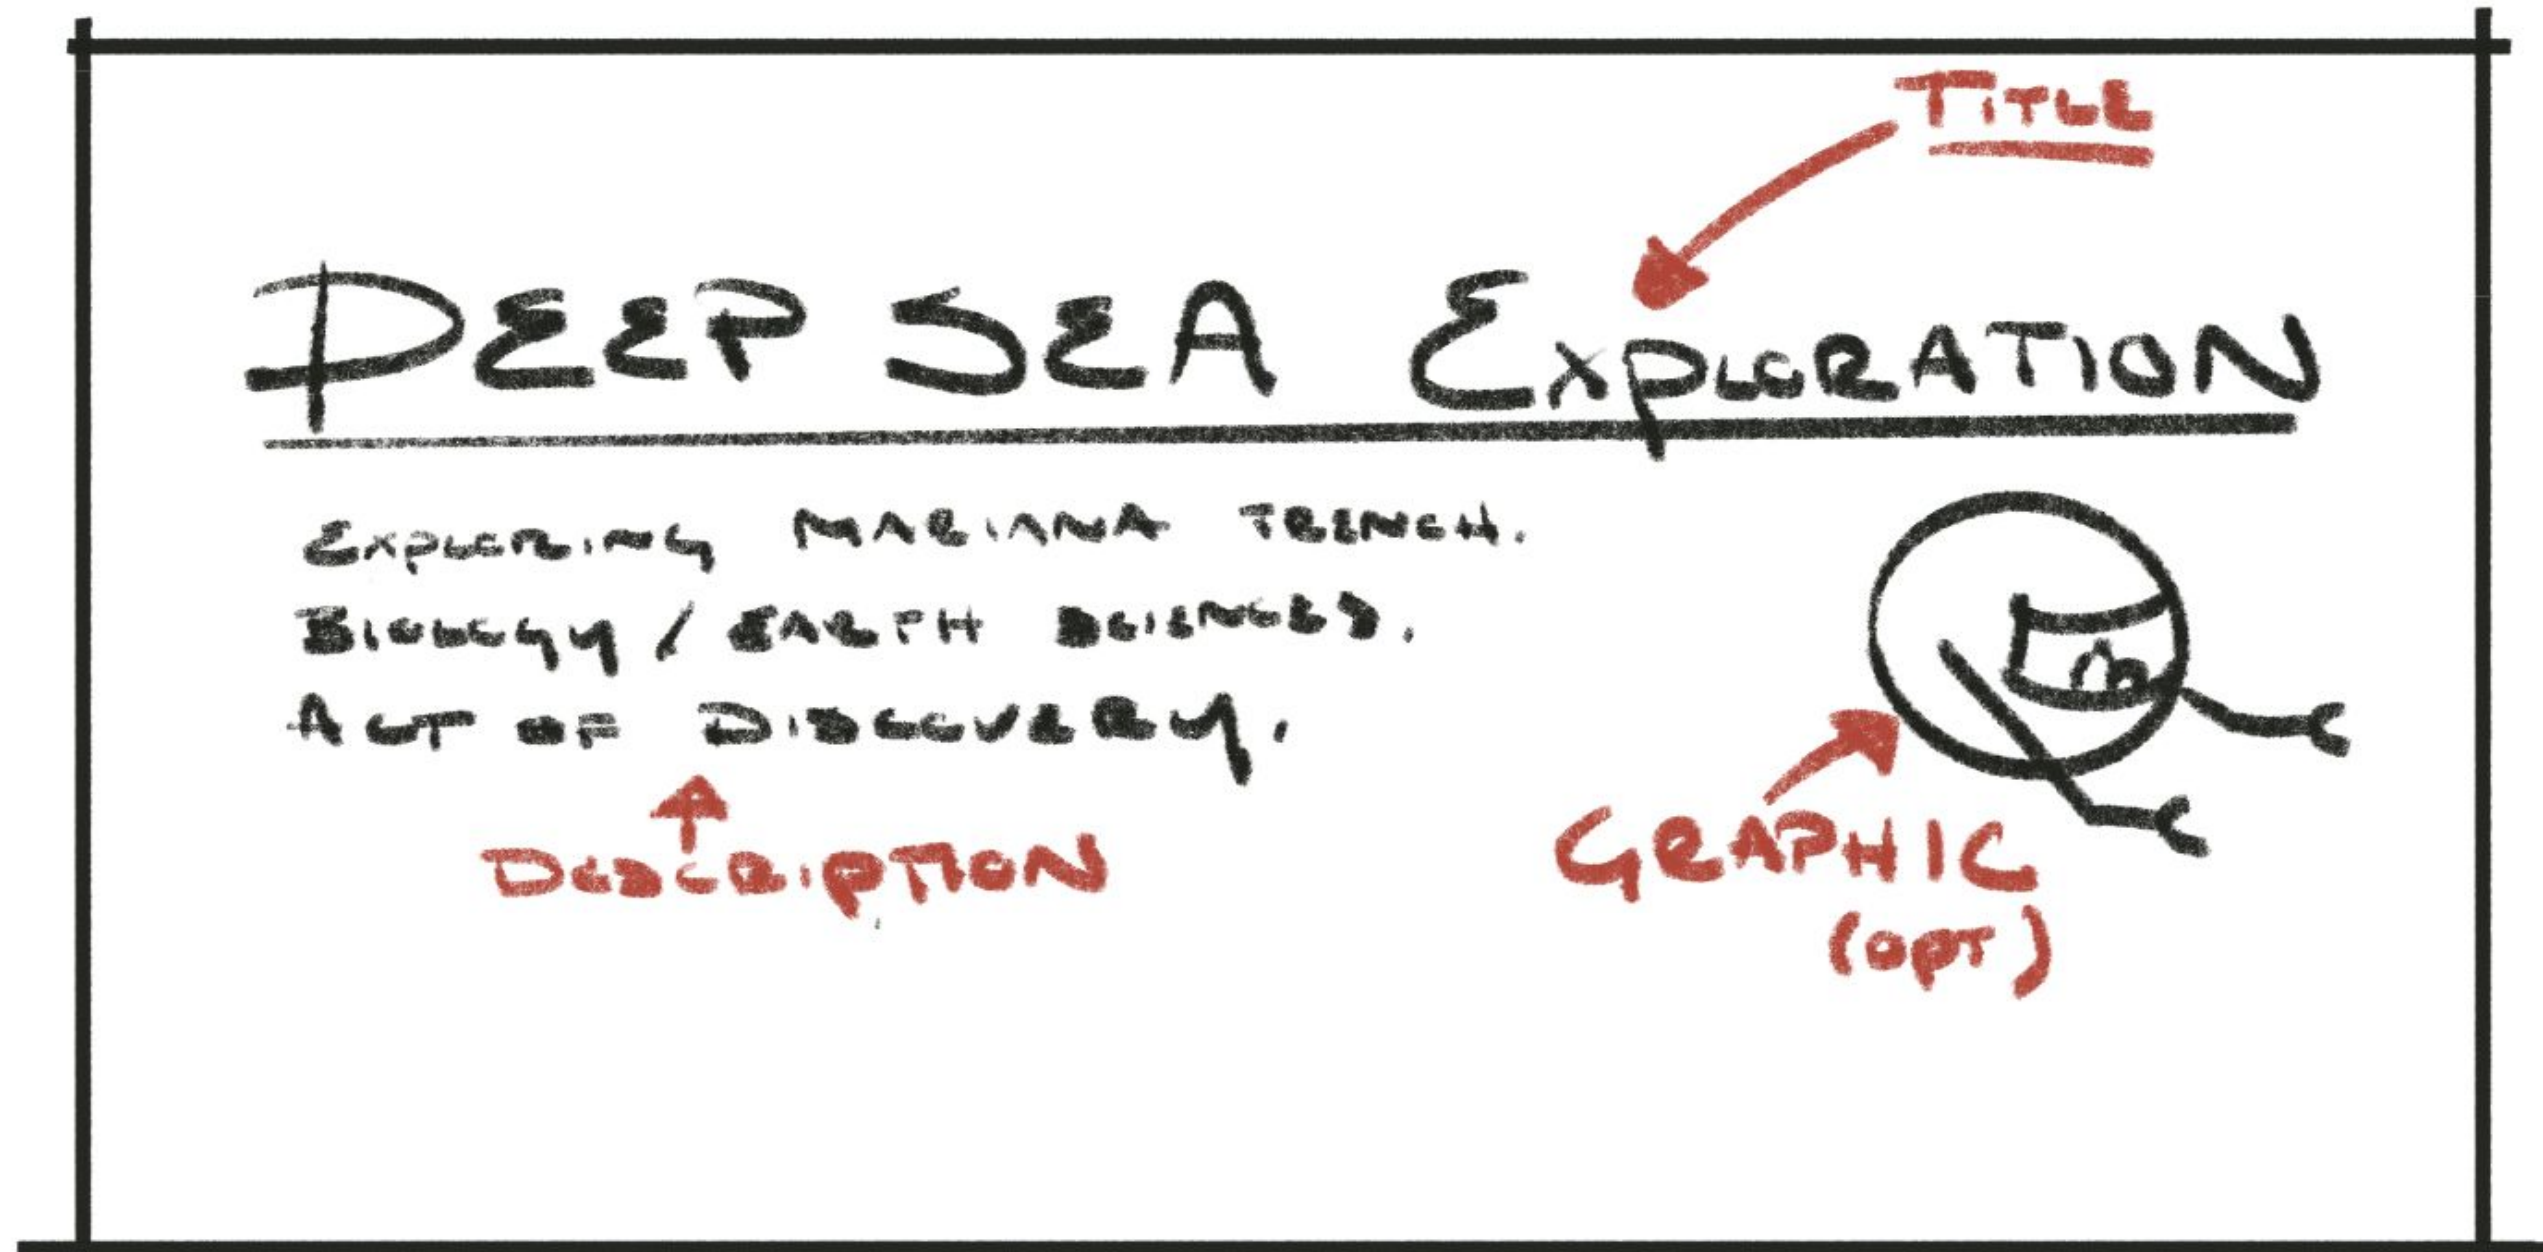 TITLE
DEEP SEA EXPLORATION
EXPLORING MARIANA TRENCH.
BIOLOGY / EARTH SCIENCES.
ACT OF DISCOVERY.
DESCRIPTION
GRAPHIC
(OPT)